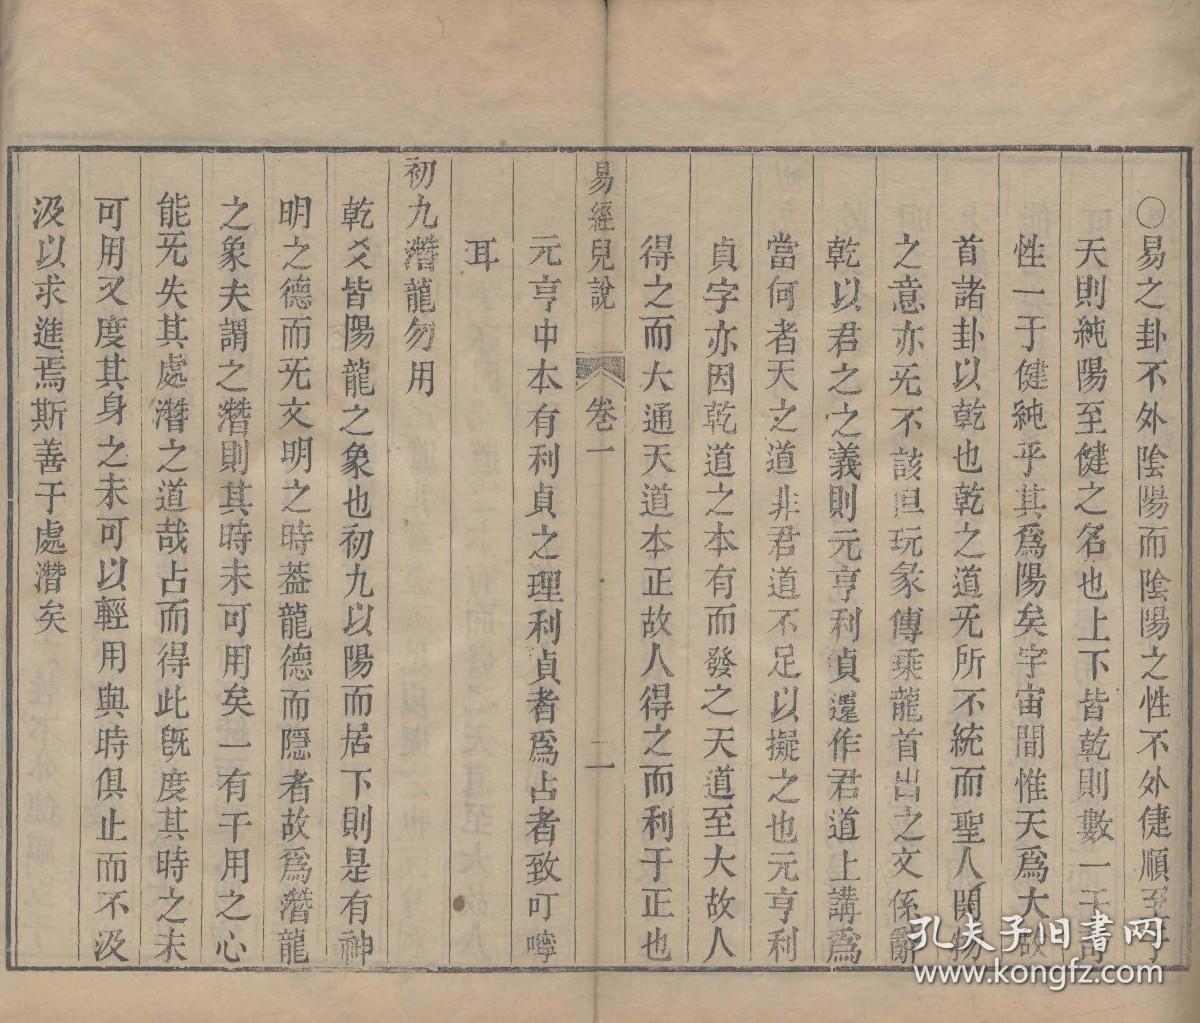 ○易之卦不外陰陽而陰陽之性不外徤順至于
天則純陽至健之名也上下皆乾則數一于奇
性一于健純乎其爲陽矣字宙間惟天爲大故
首諸卦以乾也乾之道无所不統而聖人開物
之意亦无不該但玩彖傳乘龍首出之文係辭
乾以君之之義則元亨利貞還作君道上講爲
當何者天之道非君道不足以擬之也元亨利
貞字亦因乾道之本有而發之天道至大故人
得之而大通天道本正故人得之而利于正也
易經兒說 卷一 二
元亨中本有利貞之理利貞者爲占者致叮嚀
耳
初九潛龍勿用
乾爻皆陽龍之象也初九以陽而居下則是有神
明之德而无文明之時葢龍德而隱者故爲潛龍
之象夫謂之潛則其時未可用矣一有干用之心
能无失其處潛之道哉占而得此旣度其時之未
可用又度其身之未可以輕用與時俱止而不汲
汲以求進焉斯善于處潛矣
孔夫子旧書网
www.kongfz.com